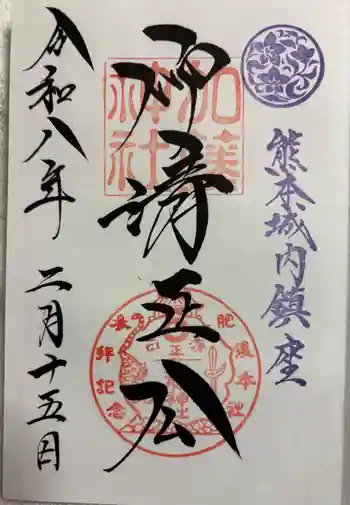 熊本城内鎮座
加藤
神社
仰清正公
肥後本社
参拝記念
令和八年 二月十五日